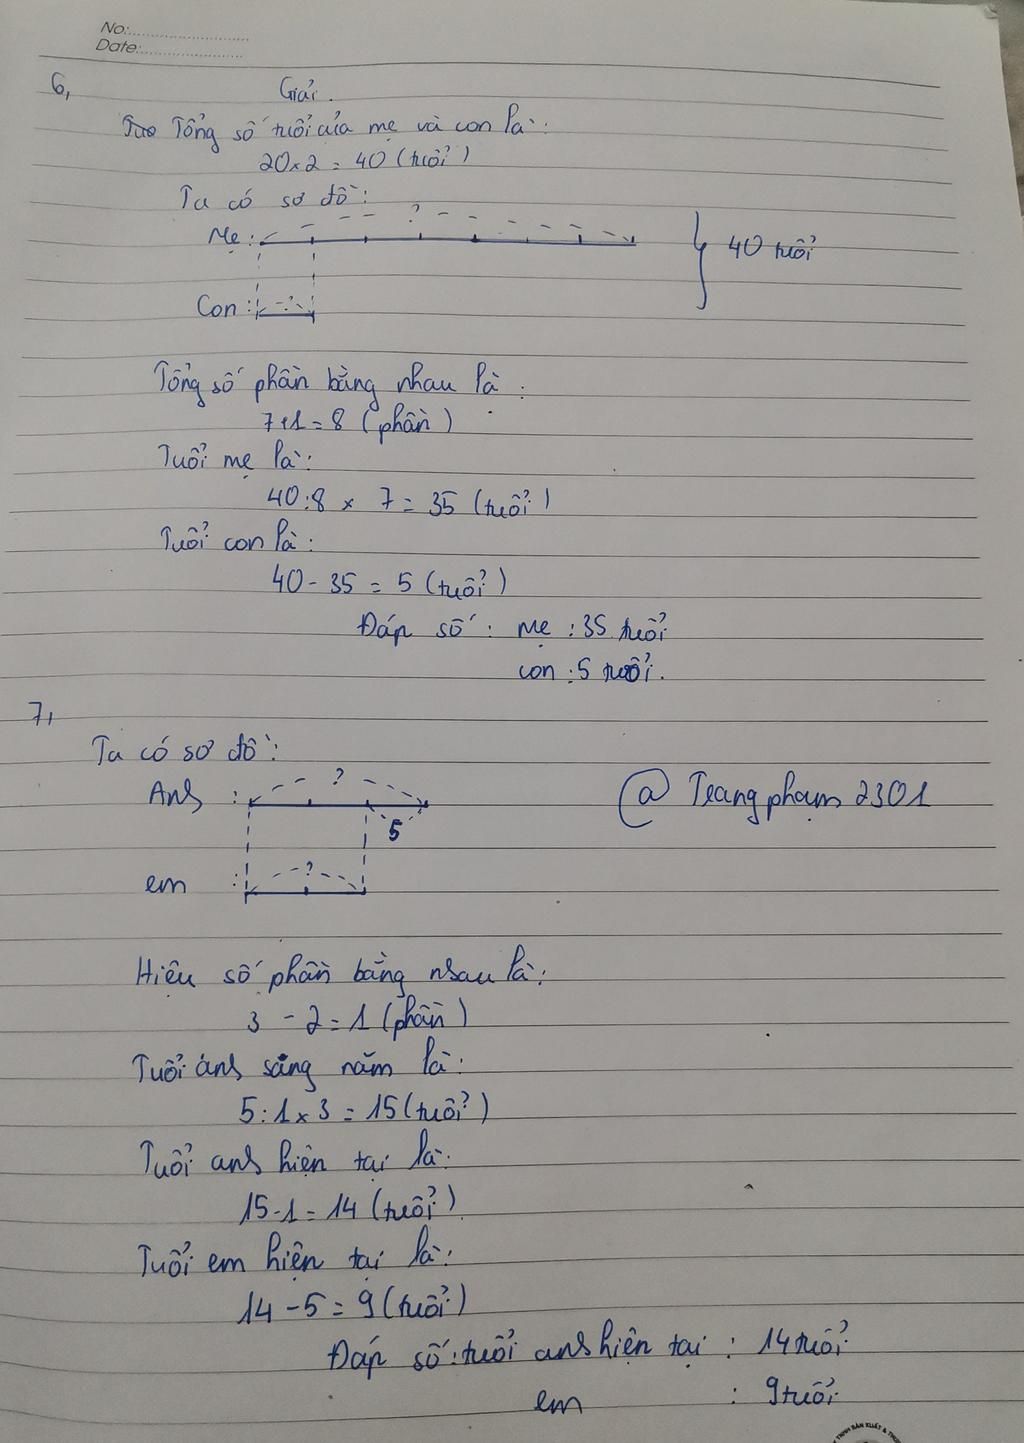 No:
Date:
6,
Giải.
Tổng số tuổi của mẹ và con là:
20 x 2 = 40 (tuổi)
Ta có sơ đồ:
?
Mẹ:
40 tuổi
Con:
?
Tổng số phần bằng nhau là:
7+1=8 (phần)
Tuổi mẹ là:
40:8 x 7 = 35 (tuổi)
Tuổi con là:
40 - 35 = 5 (tuổi)
Đáp số: mẹ: 35 tuổi
con: 5 tuổi.
7,
Ta có sơ đồ:
?
Anh :
5
@ Trangpham 2301
?
em :
Hiệu số phần bằng nhau là:
3 - 2 = 1 (phần)
Tuổi anh sang năm là:
5:1 x 3 = 15 (tuổi)
Tuổi anh hiện tại là:
15-1 = 14 (tuổi)
Tuổi em hiện tại là:
14 - 5 = 9 (tuổi)
Đáp số: tuổi anh hiện tại : 14 tuổi
em : 9 tuổi